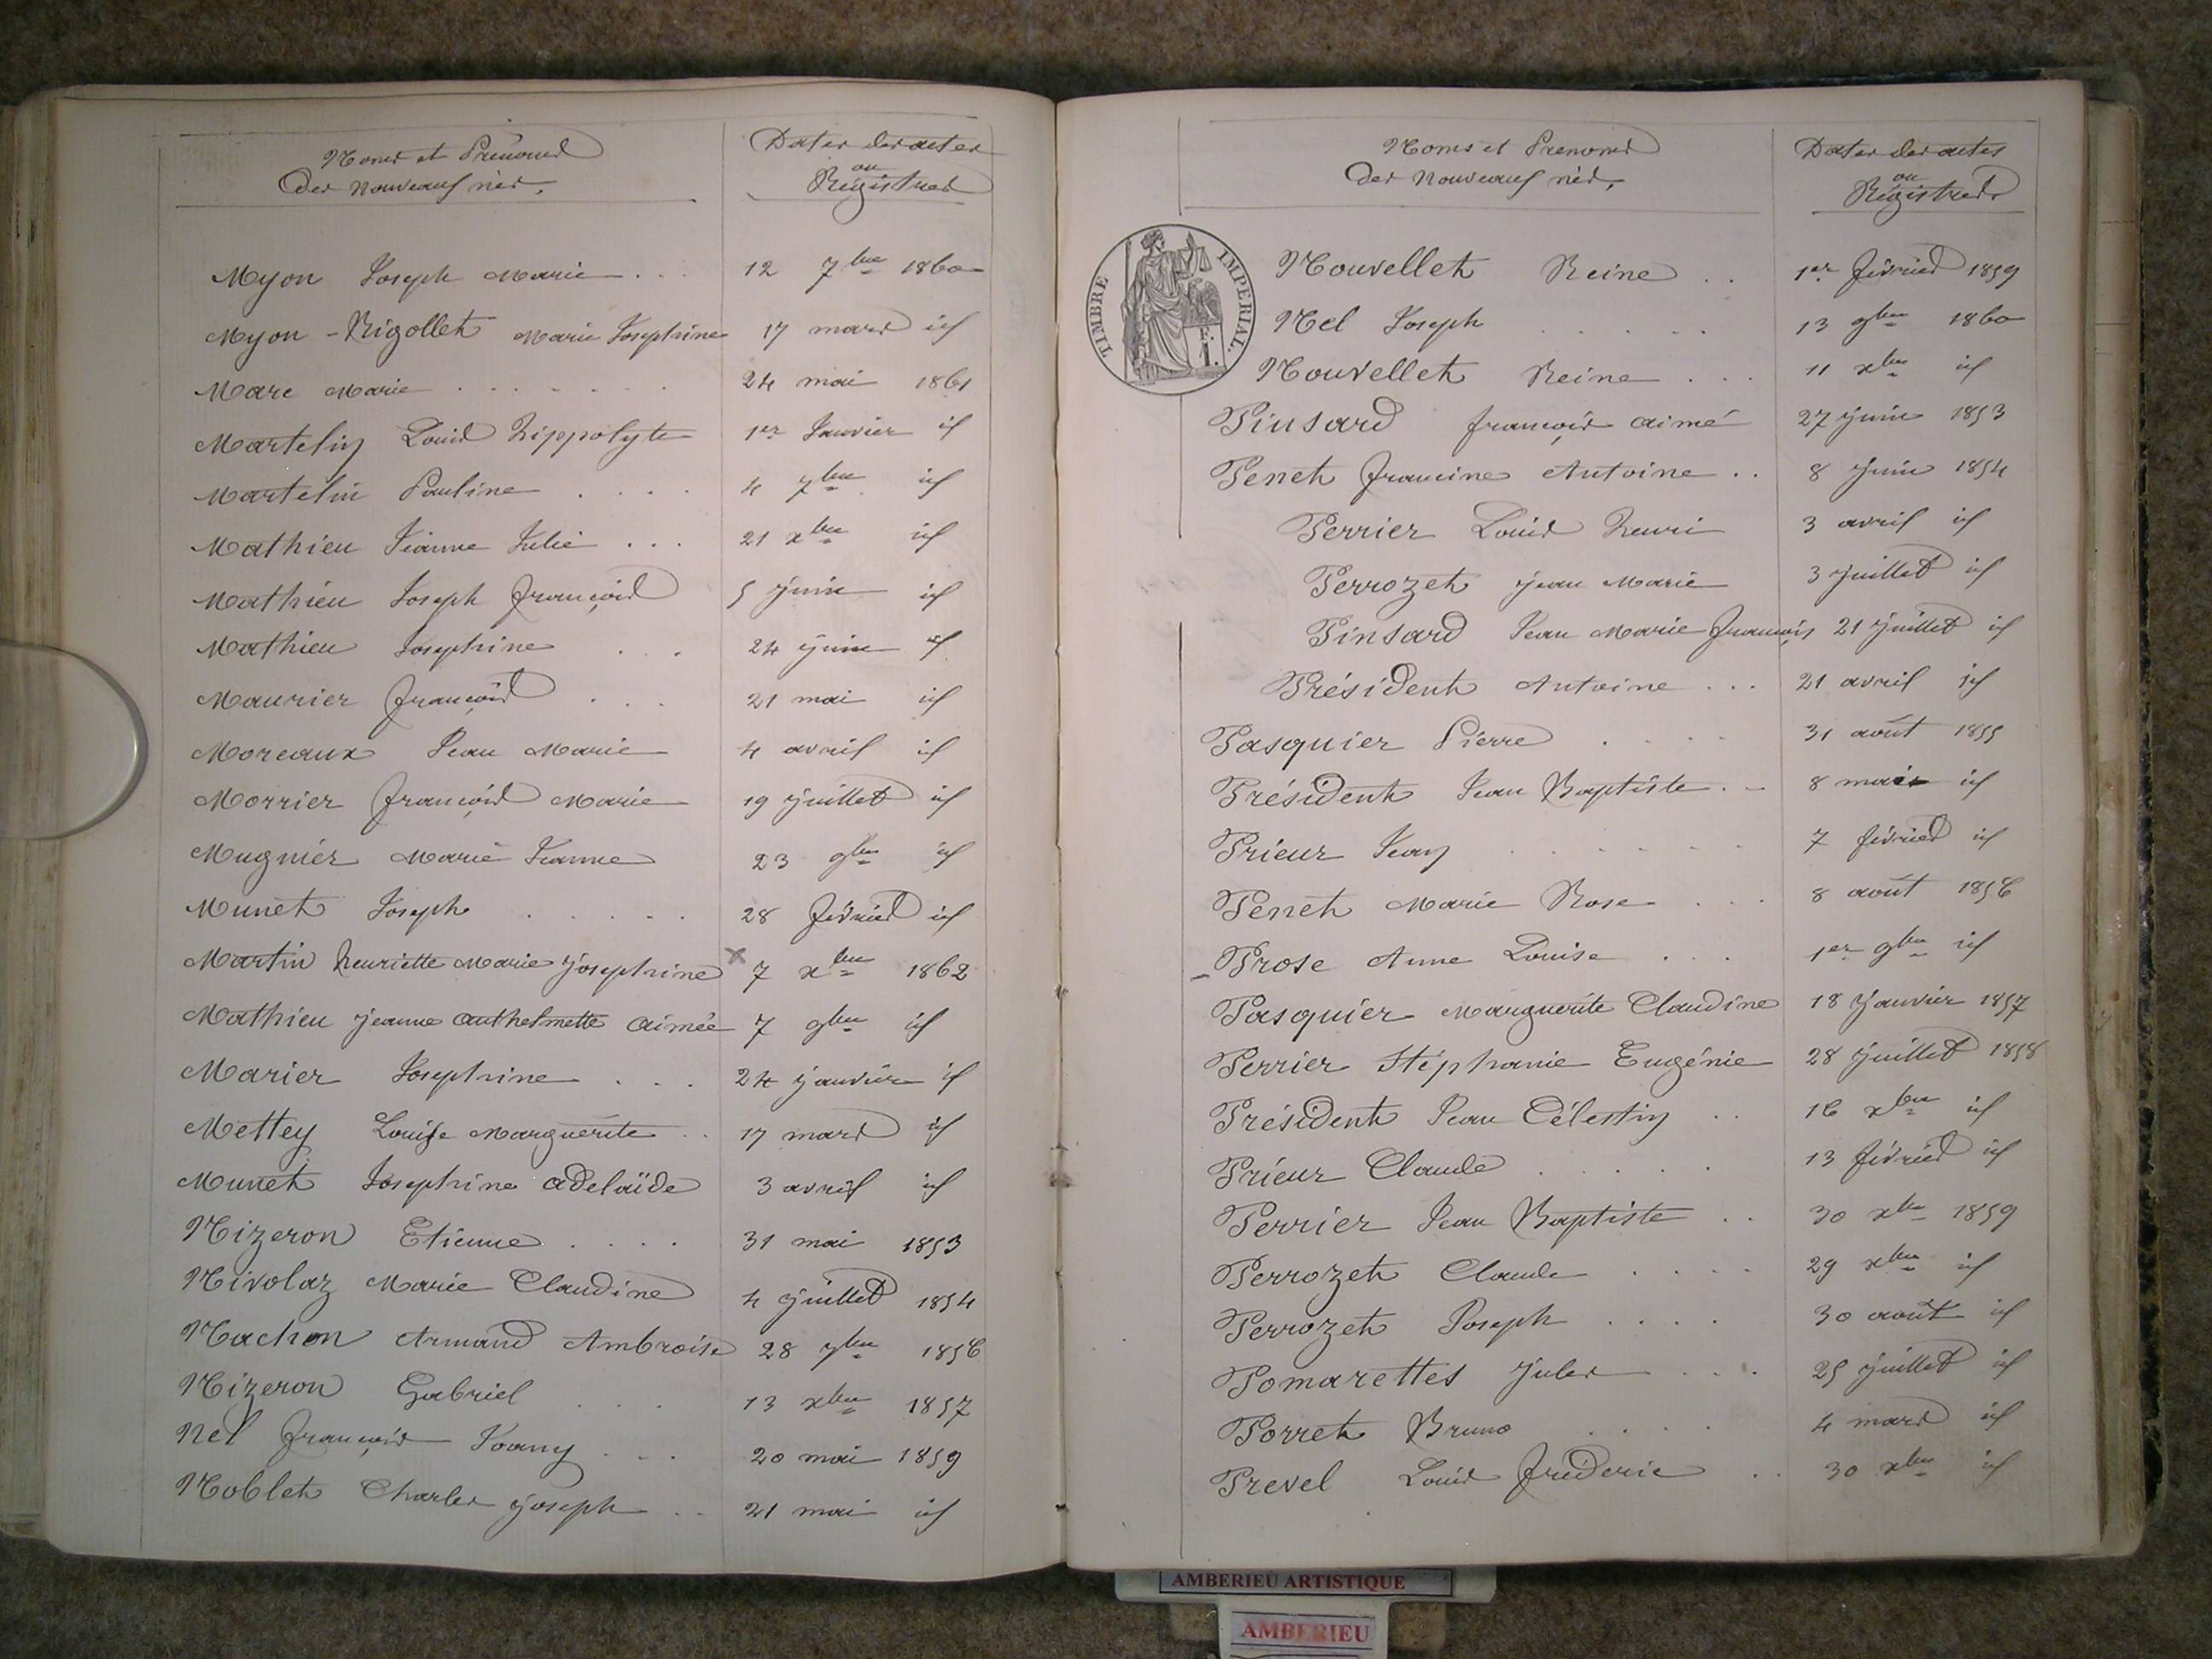 Noms et Prénoms
des nouveaux nés.
Dates des actes
ou
Régistres
Myon Joseph Marie . . . 12 7bre 1860
Myon-Rigollet Marie Josephine 17 mars id
Marc Marie . . . . . . . 24 mai 1861
Martelin Louis hippolyte 1er Janvier id
Martelin Pauline . . . . 4 7bre id
Mathieu Jeanne Julie . . . 21 xbre id
Mathieu Joseph François 5 juin id
Mathieu Josephine . . . 24 juin id
Maurier François . . . 21 mai id
Moreaux Jean Marie 4 avril id
Morrier François Marie 19 juillet id
Mugnier Marie Jeanne 23 9bre id
Munet Joseph . . . . . 28 février id
Martin henriette Marie josephine x 7 xbre 1862
Mathieu jeanne anthelmette aimée 7 9bre id
Marier Josephine . . . 24 janvier id
Mettey Louise Marguerite . . 17 mars id
Munet Josephine adelaïde 3 avril id
Nizeron Etienne . . . . 31 mai 1853
Nivolaz Marie Claudine 4 juillet 1854
Nachon Armand Ambroise 28 7bre 1856
Nizeron Gabriel . . . 13 xbre 1857
Nel François Joanny . . . 20 mai 1859
Noblet Charles joseph . . 21 mai id
Noms et Prenoms
des nouveaux nés.
Dates des actes
ou
Régistres
TIMBRE IMPERIAL.
Nouvellet Reine . . 1er février 1859
Nel Joseph . . . . . 13 9bre 1860
Nouvellet Reine . . . 11 xbre id
Pinsard françois aimé 27 juin 1853
Penet francine Antoine . . 8 juin 1854
Perrier Louis henri 3 avril id
Perrozet jean Marie 3 juillet id
Pinsard Jean Marie françois 21 juillet id
Président Antoine . . . 21 avril id
Pasquier Pierre . . . . 31 août 1855
Président Jean Baptiste . . 8 mai id
Prieur Jean . . . . . . 7 février id
Penet Marie Rose . . . 8 août 1856
Prose Anne Louise . . . 1er 9bre id
Pasquier Marguerite Claudine 18 janvier 1857
Perrier Stéphanie Eugénie 28 juillet 1858
Président Jean Célestin . . 16 xbre id
Prieur Claude . . . . . 13 février id
Perrier Jean Baptiste . . 30 xbre 1859
Perrozet Claude . . . . 29 xbre id
Perrozet Joseph . . . . 30 août id
Pomarettes jules . . . 25 juillet id
Porret Bruno . . . . 4 mars id
Prevel Louis fréderic . . 30 xbre id
AMBERIEU ARTISTIQUE
AMBERIEU